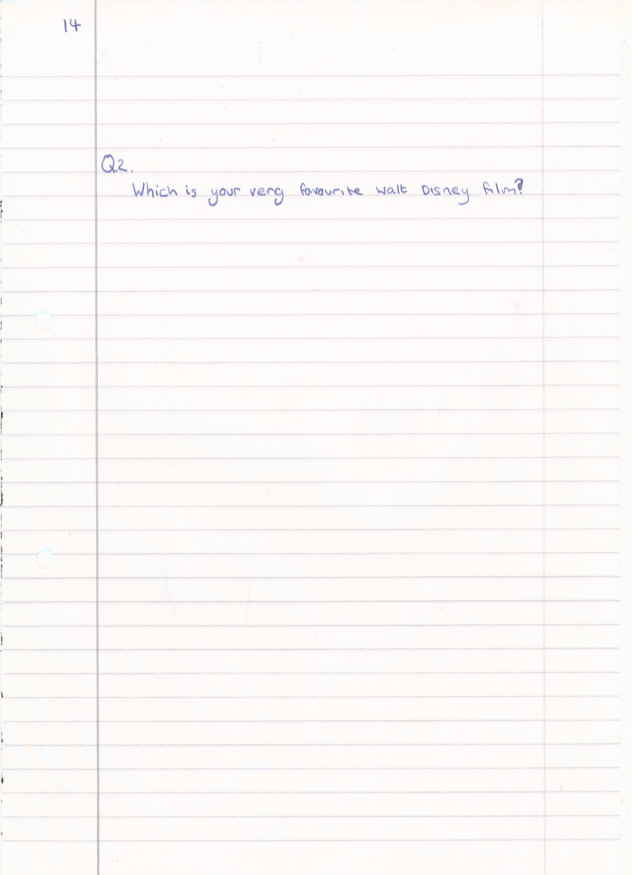 14
Q2.
Which is your very favourite Walt Disney film?